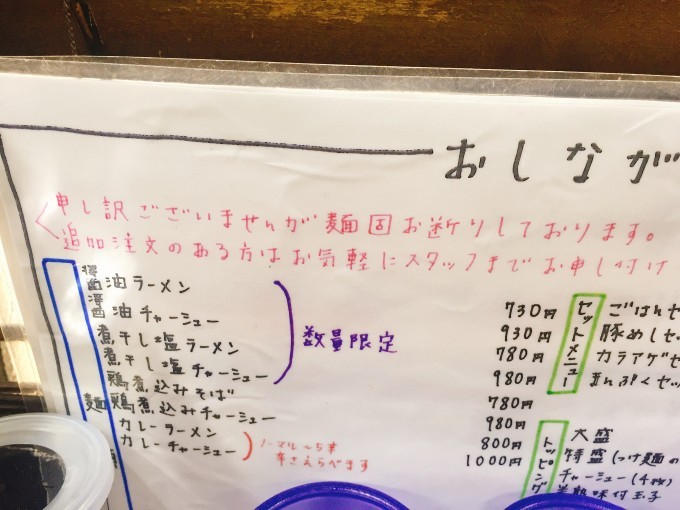 おしなが
申し訳ございませんが麺固お断りしております。
追加注文のある方はお気軽にスタッフまでお申し付け
醤油ラーメン
醤油チャーシュー
煮干し塩ラーメン
煮干し塩チャーシュー
鶏煮込みそば
鶏煮込みチャーシュー
カレーラーメン
カレーチャーシュー
麺
数量限定
ノーマル〜5辛
辛さえらべます
730円
930円
780円
980円
780円
980円
800円
1000円
セットメニュー
ごはんセ
豚めしセ
カラアゲセ
トッピング
大盛
特盛(つけ麺の
チャーシュー(4枚)
半熟味付玉子